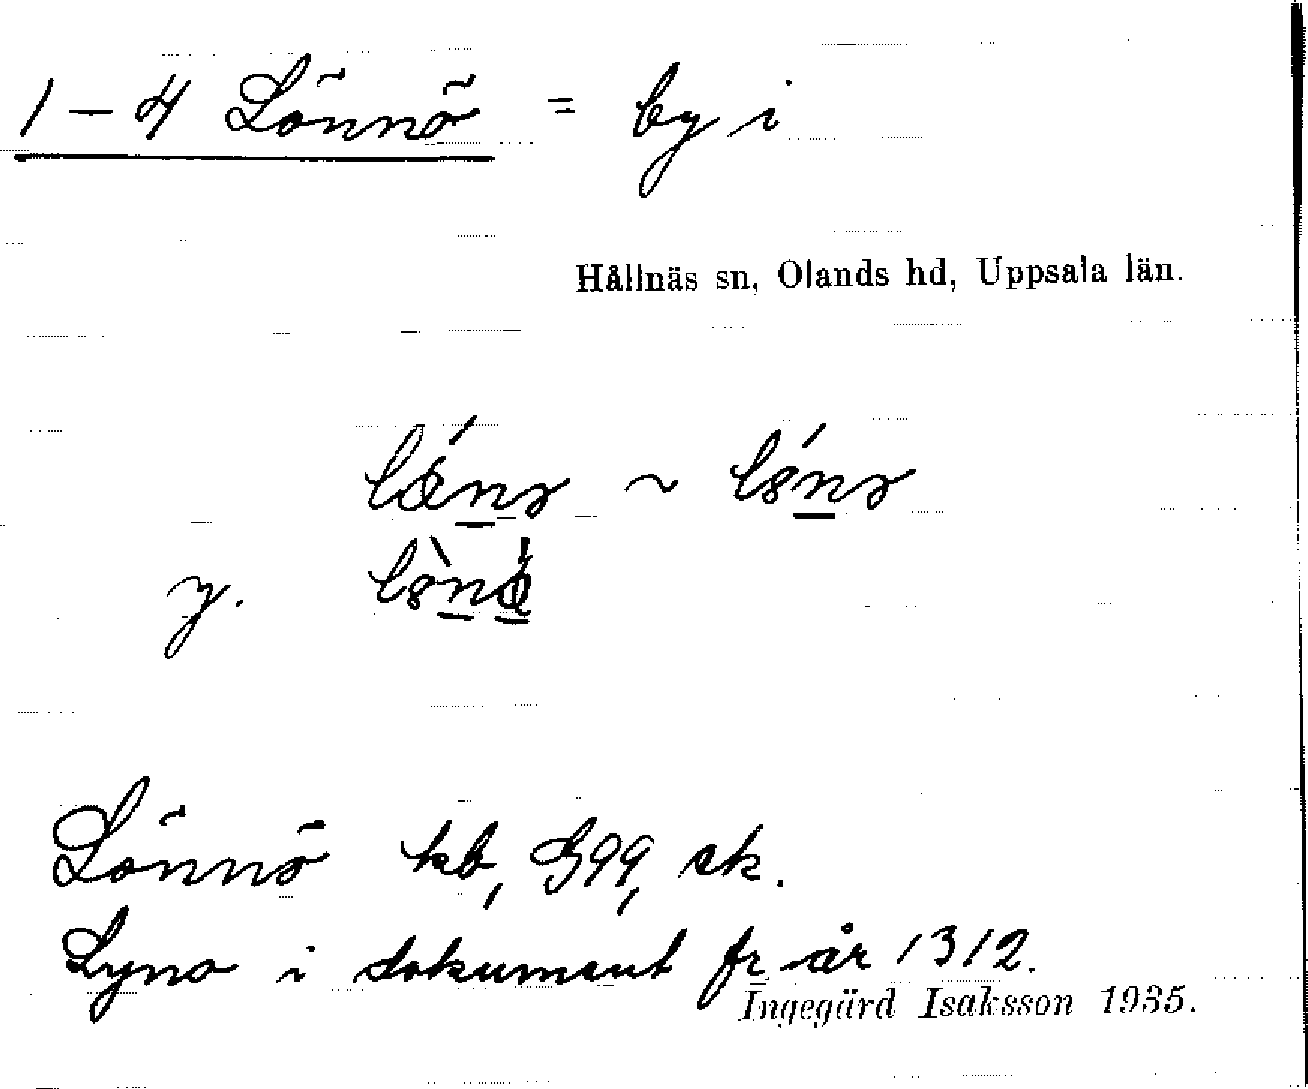 1 – 4 Lönnö = by i
Hållnäs sn, Olands hd, Uppsala län.
~
y.
Lönnö kb, G99, sk.
Lyno i dokument fr år 1312.
Ingegärd Isaksson 1935.